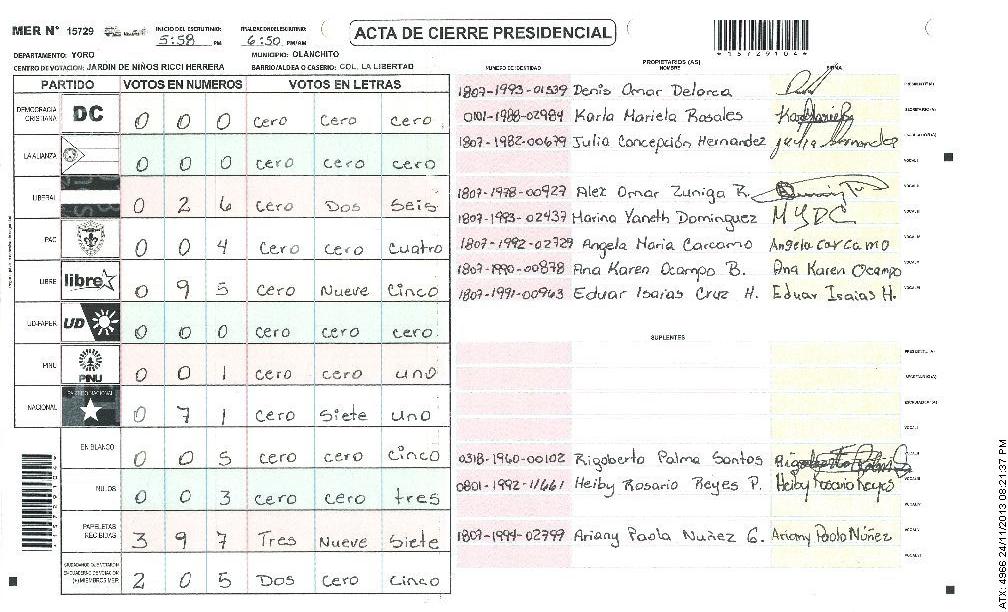 MER N° 15729 INICIO DEL ESCRUTINIO: 5:58 PM FINALIZACION DEL ESCRUTINIO: 6:50 PM/AM
ACTA DE CIERRE PRESIDENCIAL
*15729104*
DEPARTAMENTO: YORO MUNICIPIO: OLANCHITO
CENTRO DE VOTACION: JARDIN DE NIÑOS RICCI HERRERA BARRIO/ALDEA O CASERIO: COL. LA LIBERTAD
PARTIDO VOTOS EN NUMEROS VOTOS EN LETRAS
DEMOCRACIA CRISTIANA DC 0 0 0 cero cero cero
LA ALIANZA 0 0 0 cero cero cero
LIBERAL 0 2 6 cero Dos seis
PAC 0 0 4 cero cero cuatro
LIBRE libre 0 9 5 cero Nueve cinco
UD-FAPER UD 0 0 0 cero cero cero
PINU PINU 0 0 1 cero cero uno
NACIONAL PARTIDO NACIONAL 0 7 1 cero siete uno
EN BLANCO 0 0 5 cero cero cinco
NULOS 0 0 3 cero cero tres
PAPELETAS RECIBIDAS 3 9 7 Tres Nueve siete
CIUDADANOS QUE VOTARON EN CUADERNO DE VOTACION (+) MIEMBROS MER 2 0 5 Dos cero cinco
PROPIETARIOS (AS)
NUMERO DE IDENTIDAD NOMBRE FIRMA
1807-1993-01539 Denis Omar Delarca PRESIDENTE(A)
0101-1988-02984 Karla Mariela Rosales SECRETARIO(A)
1807-1982-00679 Julia Concepción Hernandez Julia Hernandez ESCRUTADOR(A)
VOCAL I
1807-1978-00927 Alex Omar Zuniga R. VOCAL II
1807-1993-02437 Marina Yaneth Dominguez MYDC VOCAL III
1807-1992-02729 Angela Maria Carcamo Angela Carcamo
1807-1990-00878 Ana Karen Ocampo B. Ana Karen Ocampo
1807-1991-00963 Eduar Isaias Cruz H. Eduar Isaias H.
SUPLENTES
PRESIDENTE(A)
SECRETARIO(A)
ESCRUTADOR(A)
VOCAL I
0318-1960-00102 Rigoberto Palma Santos
0801-1992-11661 Heiby Rosario Reyes P. Heiby Rosario Reyes
1807-1994-02799 Ariany Paola Nuñez G. Ariany Paola Núñez
ATX: 4966 24/11/2013 08:21:37 PM